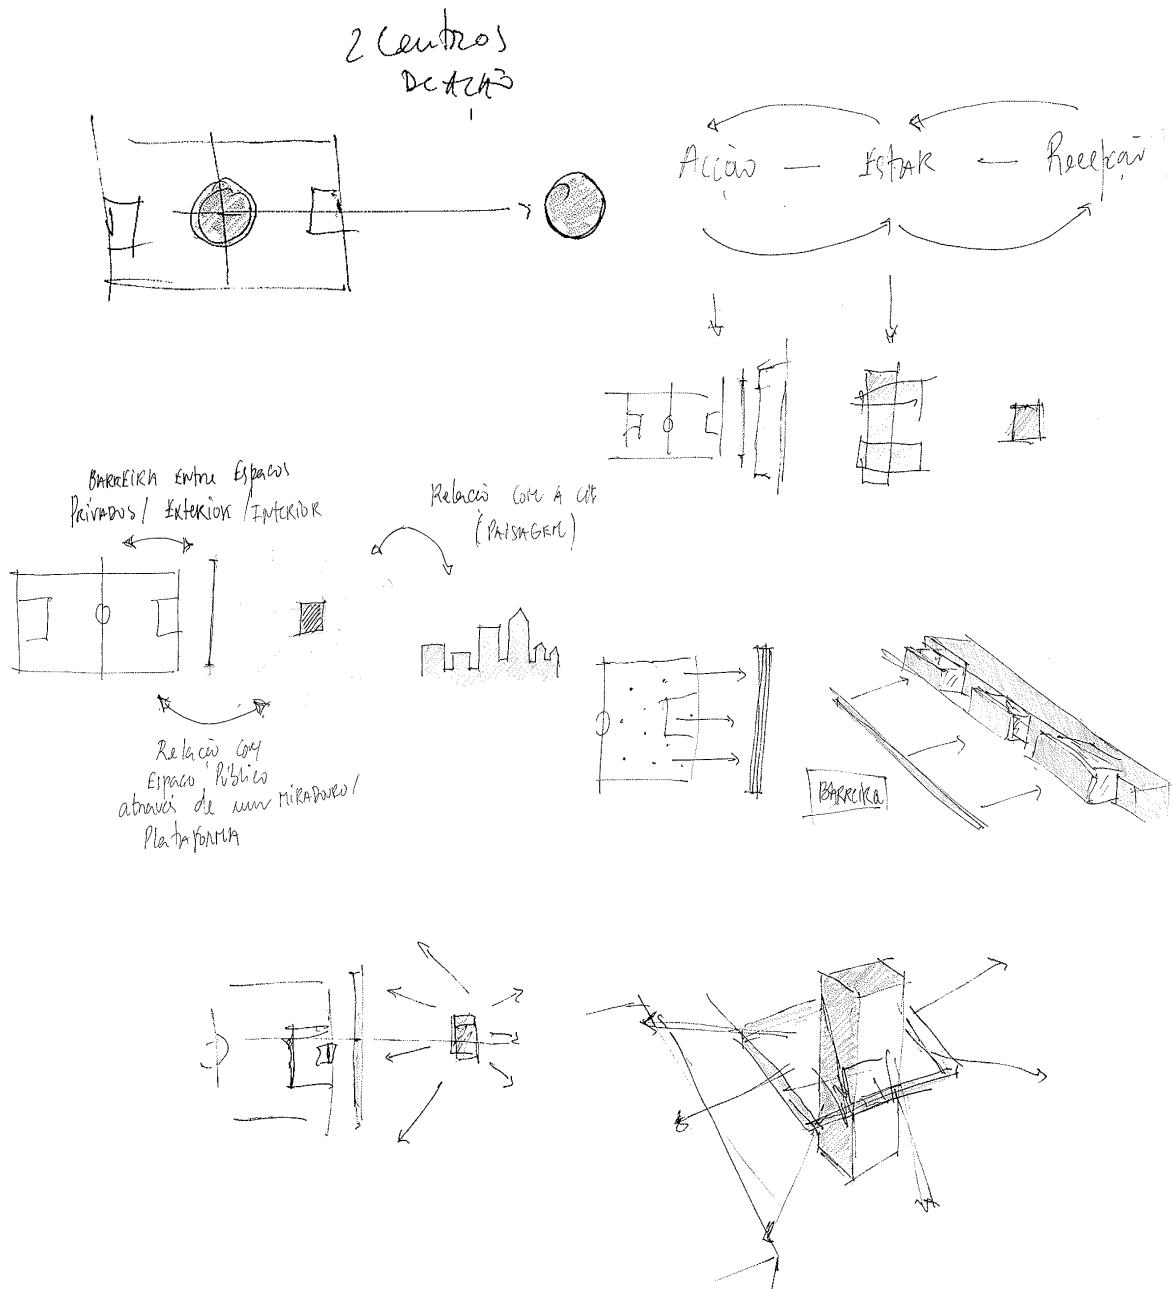 2 Centros
DE AÇÃO
Acção — Estar — Recepção
BARREIRA Entre Espaços
Privados / Exterior / Interior
Relação com a
(PAISAGEM)
Relação com
Espaço Público
através de um MIRADOURO /
PLATAFORMA
BARREIRA